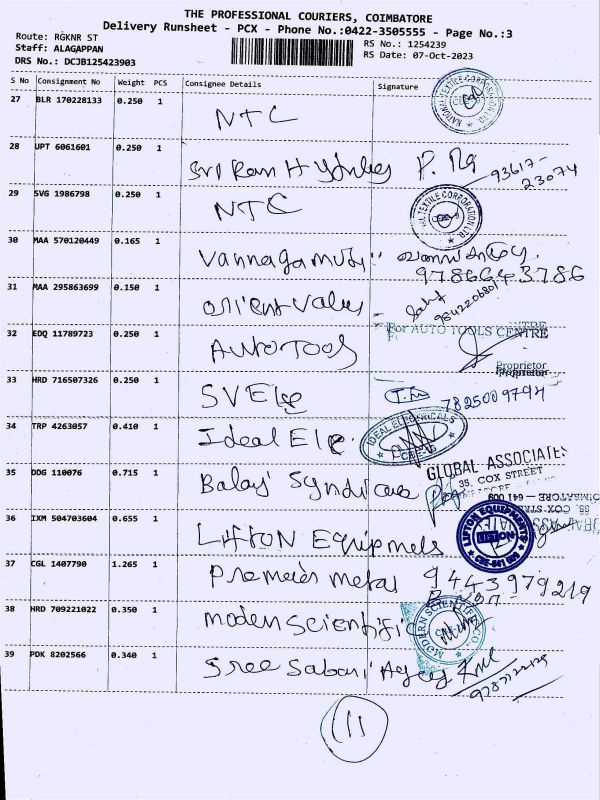 THE PROFESSIONAL COURIERS, COIMBATORE
Delivery Runsheet - PCX - Phone No.:0422-3505555 - Page No.:3
Route: RGKNR ST
Staff: ALAGAPPAN
DRS No.: DCJB125423903
RS No.: 1254239
RS Date: 07-Oct-2023
S No Consignment No Weight PCS Consignee Details Signature
27 BLR 170228133 0.250 1 NTC
28 UPT 6061601 0.250 1 Sri Ram H 93617-23074
29 SVG 1986798 0.250 1 NTC
30 MAA 570120449 0.165 1 9786643786
31 MAA 295863699 0.150 1 Orient Values 9842206801
For AUTO TOOLS CENTRE
32 EDQ 11789723 0.250 1 AUTO TOOS
Proprietor
33 HRD 716507326 0.250 1 SV Ele 7825009794
34 TRP 4263057 0.410 1 Ideal Ele IDEAL ELECTRICALS CBE-9
35 DDG 110076 0.715 1 Balaji Syndicate
GLOBAL ASSOCIATES
35, COX STREET
COIMBATORE - 641 009
36 IXM 504703604 0.655 1 Lifton Equipmets LIFTON EQUIPMENTS LIFTON CBE-641 009
37 CGL 1407790 1.265 1 Premeier metal 9443979219
38 HRD 709221022 0.350 1 moden scientific MODERN SCIENTIFIC CO.
39 PDK 8202566 0.340 1 Sree Sabari Agcy
11